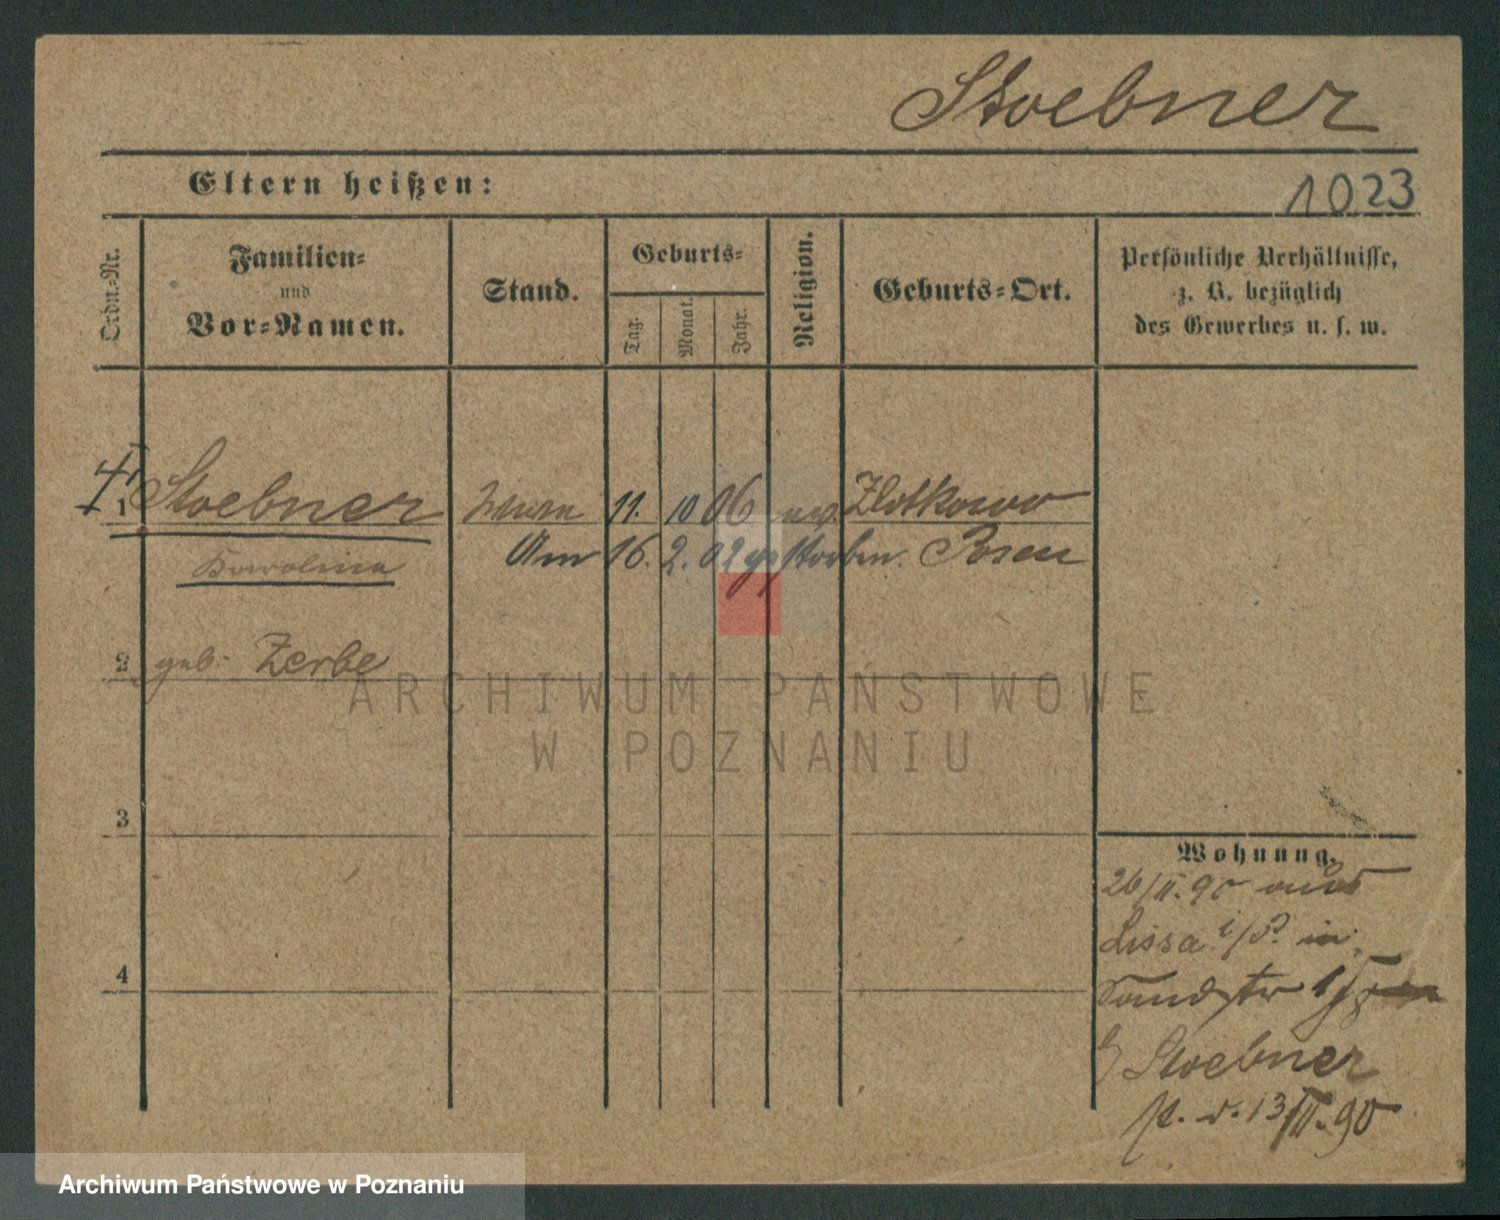 Stoebner
Eltern heißen:
1023
Ordn.-Nr.
Familien-
und
Vor-Namen.
Stand.
Geburts-
Tag.
Monat.
Jahr.
Religion.
Geburts-Ort.
Persönliche Verhältnisse,
z. B. bezüglich
des Gewerbes u. s. w.
1 Stoebner Wwe 11. 10 06 ev. Zlotkowo
Karolina Am 16. 2. 02 gestorben. Posen
2 geb. Zerbe
ARCHIWUM PAŃSTWOWE
W POZNANIU
3
4
Wohnung.
26/II. 90 aus
Lissa i/P. in
Sandstr
b/ Stoebner
13/II. 90
Archiwum Państwowe w Poznaniu